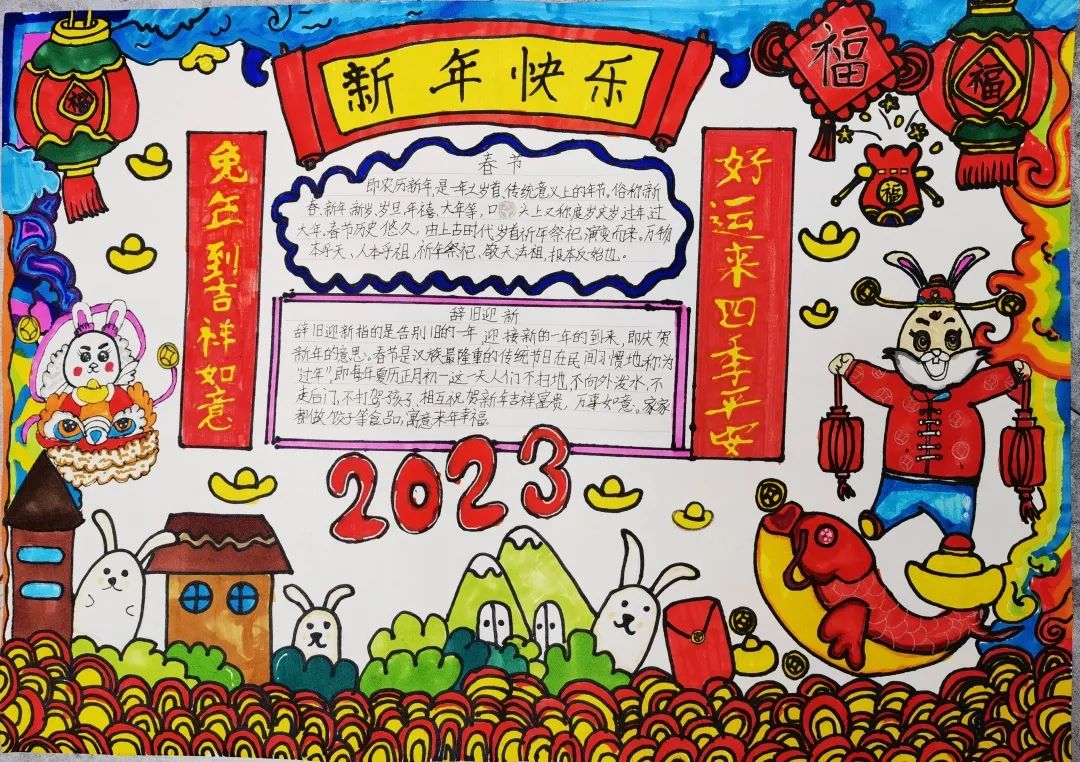 新年快乐
福
福
福
福
兔年到吉祥如意
好运来四季平安
春节
即农历新年,是一年之岁首,传统意义上的年节。俗称新
春、新年、新岁、岁旦、年禧、大年等,口上又称度岁、庆岁、过年、过
大年。春节历史悠久,由上古时代岁首祈年祭祀演变而来。万物
本乎天、人本乎祖,祈年祭祀、敬天法祖,报本反始也。
辞旧迎新
辞旧迎新指的是告别旧的一年,迎接新的一年的到来,即庆贺
新年的意思。春节是汉族最隆重的传统节日在民间习惯地称为
“过年”。即每年夏历正月初一这一天人们不扫地,不向外泼水,不
走后门,不打骂孩子,相互祝贺新年吉祥富贵,万事如意。家家
都做饺子等食品,寓意来年幸福。
2023